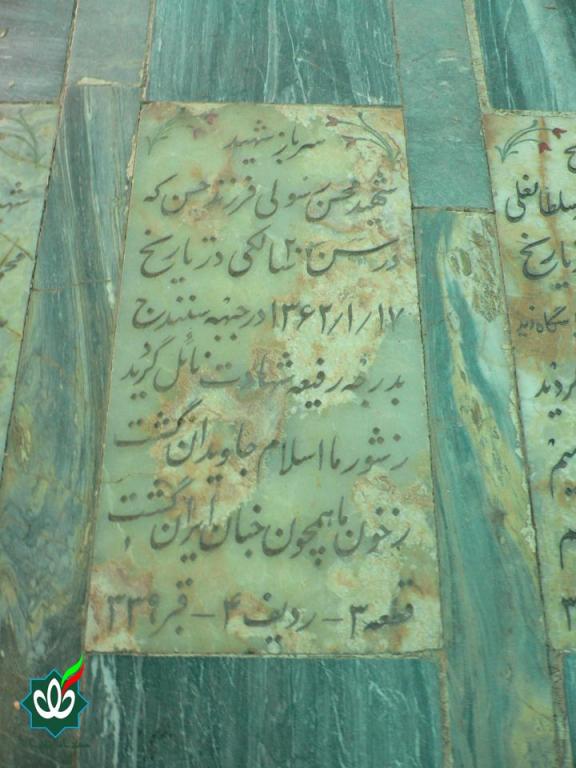 سرباز شهید
شهید محسن رسولی فرزند حسن که
در سن ۲۰ سالگی در تاریخ
۱۳۶۲/۱/۱۷ در جبهه سنندج
بدرجه رفیعه شهادت نائل گردید
ز شور ما اسلام جاویدان گشت
ز خون ما همچون جنان ایران گشت
قطعه ۳ - ردیف ۴ - قبر ۳۳۹
سلطانعلی
تاریخ